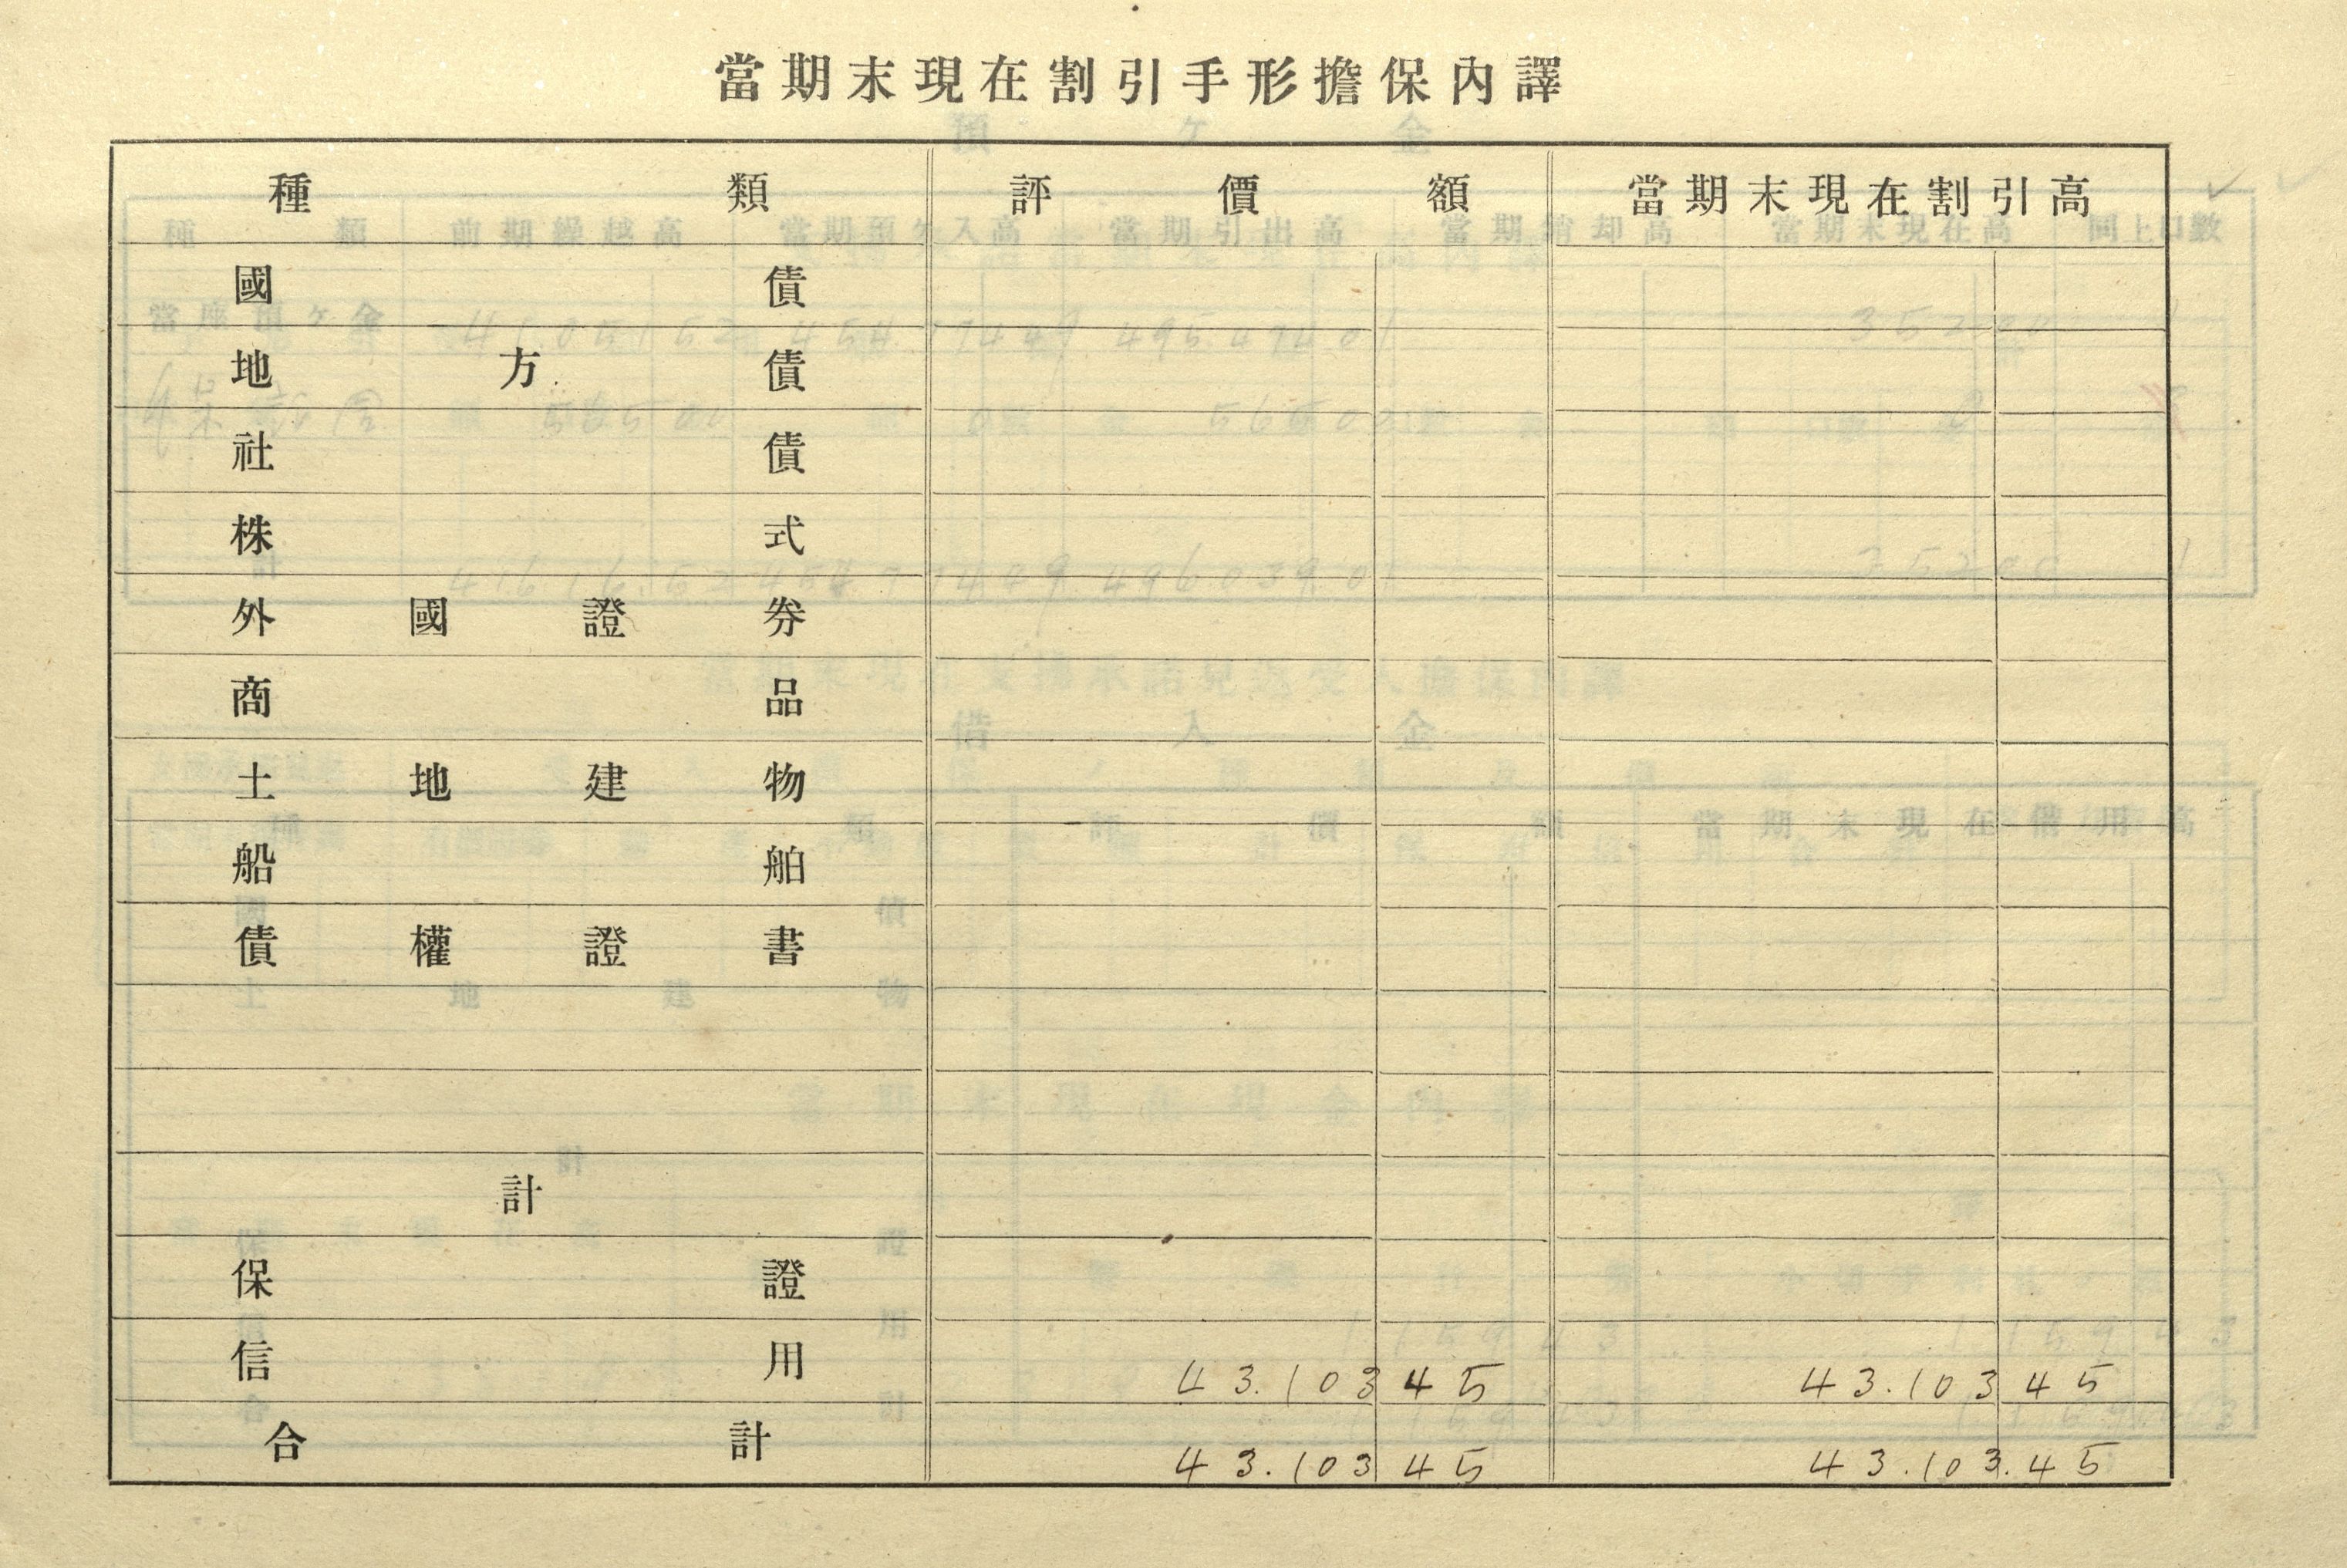 當期末現在割引手形擔保內譯
種類 評價額 當期末現在割引高
國債
地方債
社債
株式
外國證券
商品
土地建物
船舶
債權證書
計
保證
信用 43.103 45 43.103 45
合計 43.103 45 43.103.45